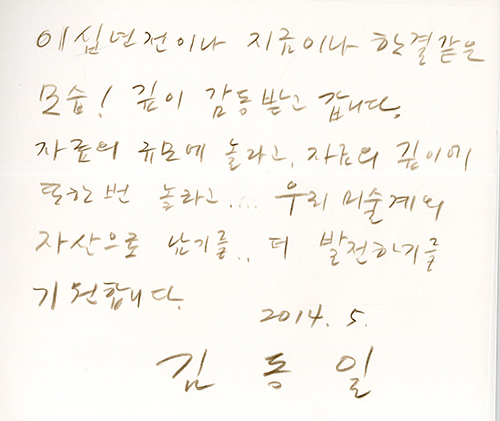 이십년전이나 지금이나 한결같은
모습! 깊이 감동받고 갑니다.
자료의 규모에 놀라고, 자료의 깊이에
또한번 놀라고.... 우리 미술계의
자산으로 남기를.. 더 발전하기를
기원합니다.
2014. 5.
김 동 일